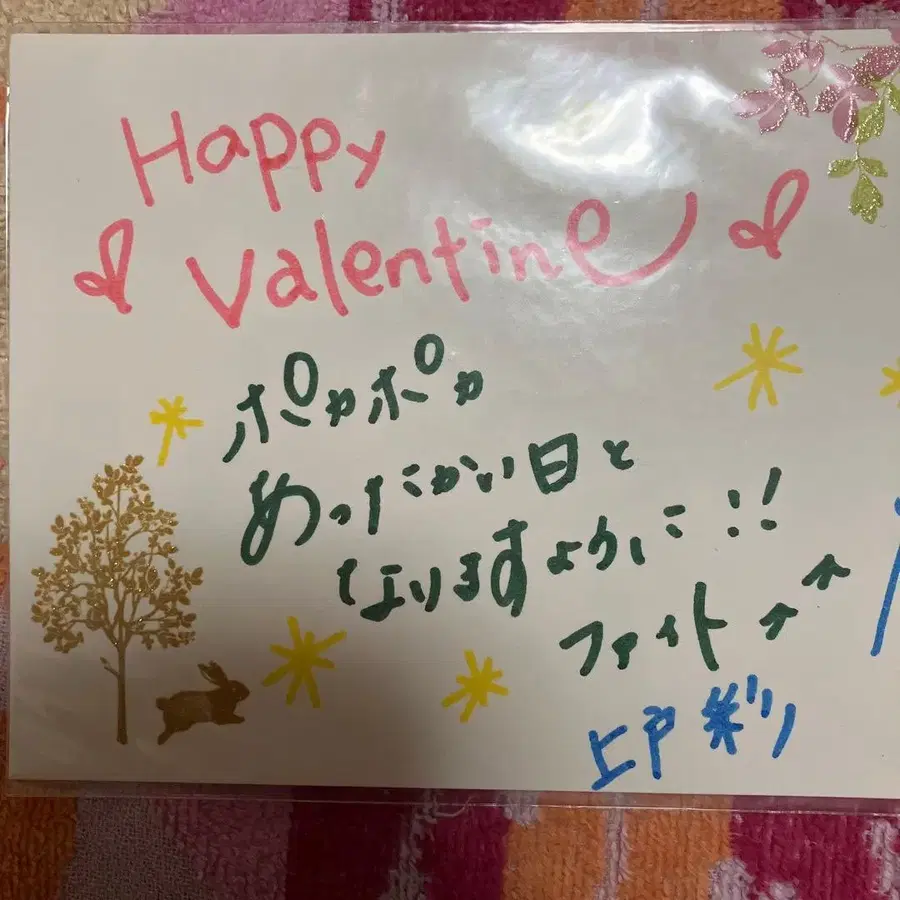 Happy
Valentine
ポカポカ
あったかい日と
なりますように!!
ファイト↗↗
上戸彩